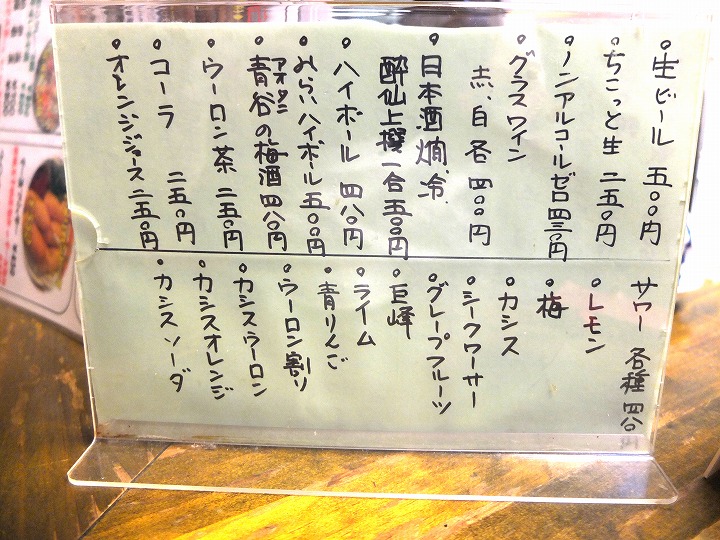 生ビール 五〇〇円
ちょこっと生 二五〇円
ノンアルコールゼロ四三〇円
グラスワイン
赤、白 各 四〇〇円
日本酒 燗、冷
酔仙上撰一合五〇〇円
ハイボール 四八〇円
みらいハイボール 五〇〇円
青谷の梅酒 四八〇円
アオダニ
ウーロン茶 二五〇円
コーラ 二五〇円
オレンジジュース 二五〇円
サワー 各種 四八〇円
レモン
梅
カシス
シークワーサー
グレープフルーツ
巨峰
ライム
青りんご
ウーロン割り
カシスウーロン
カシスオレンジ
カシスソーダ